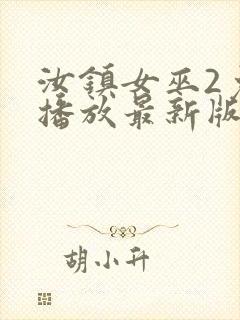 汝鎮女巫2
播放最新版
胡小升